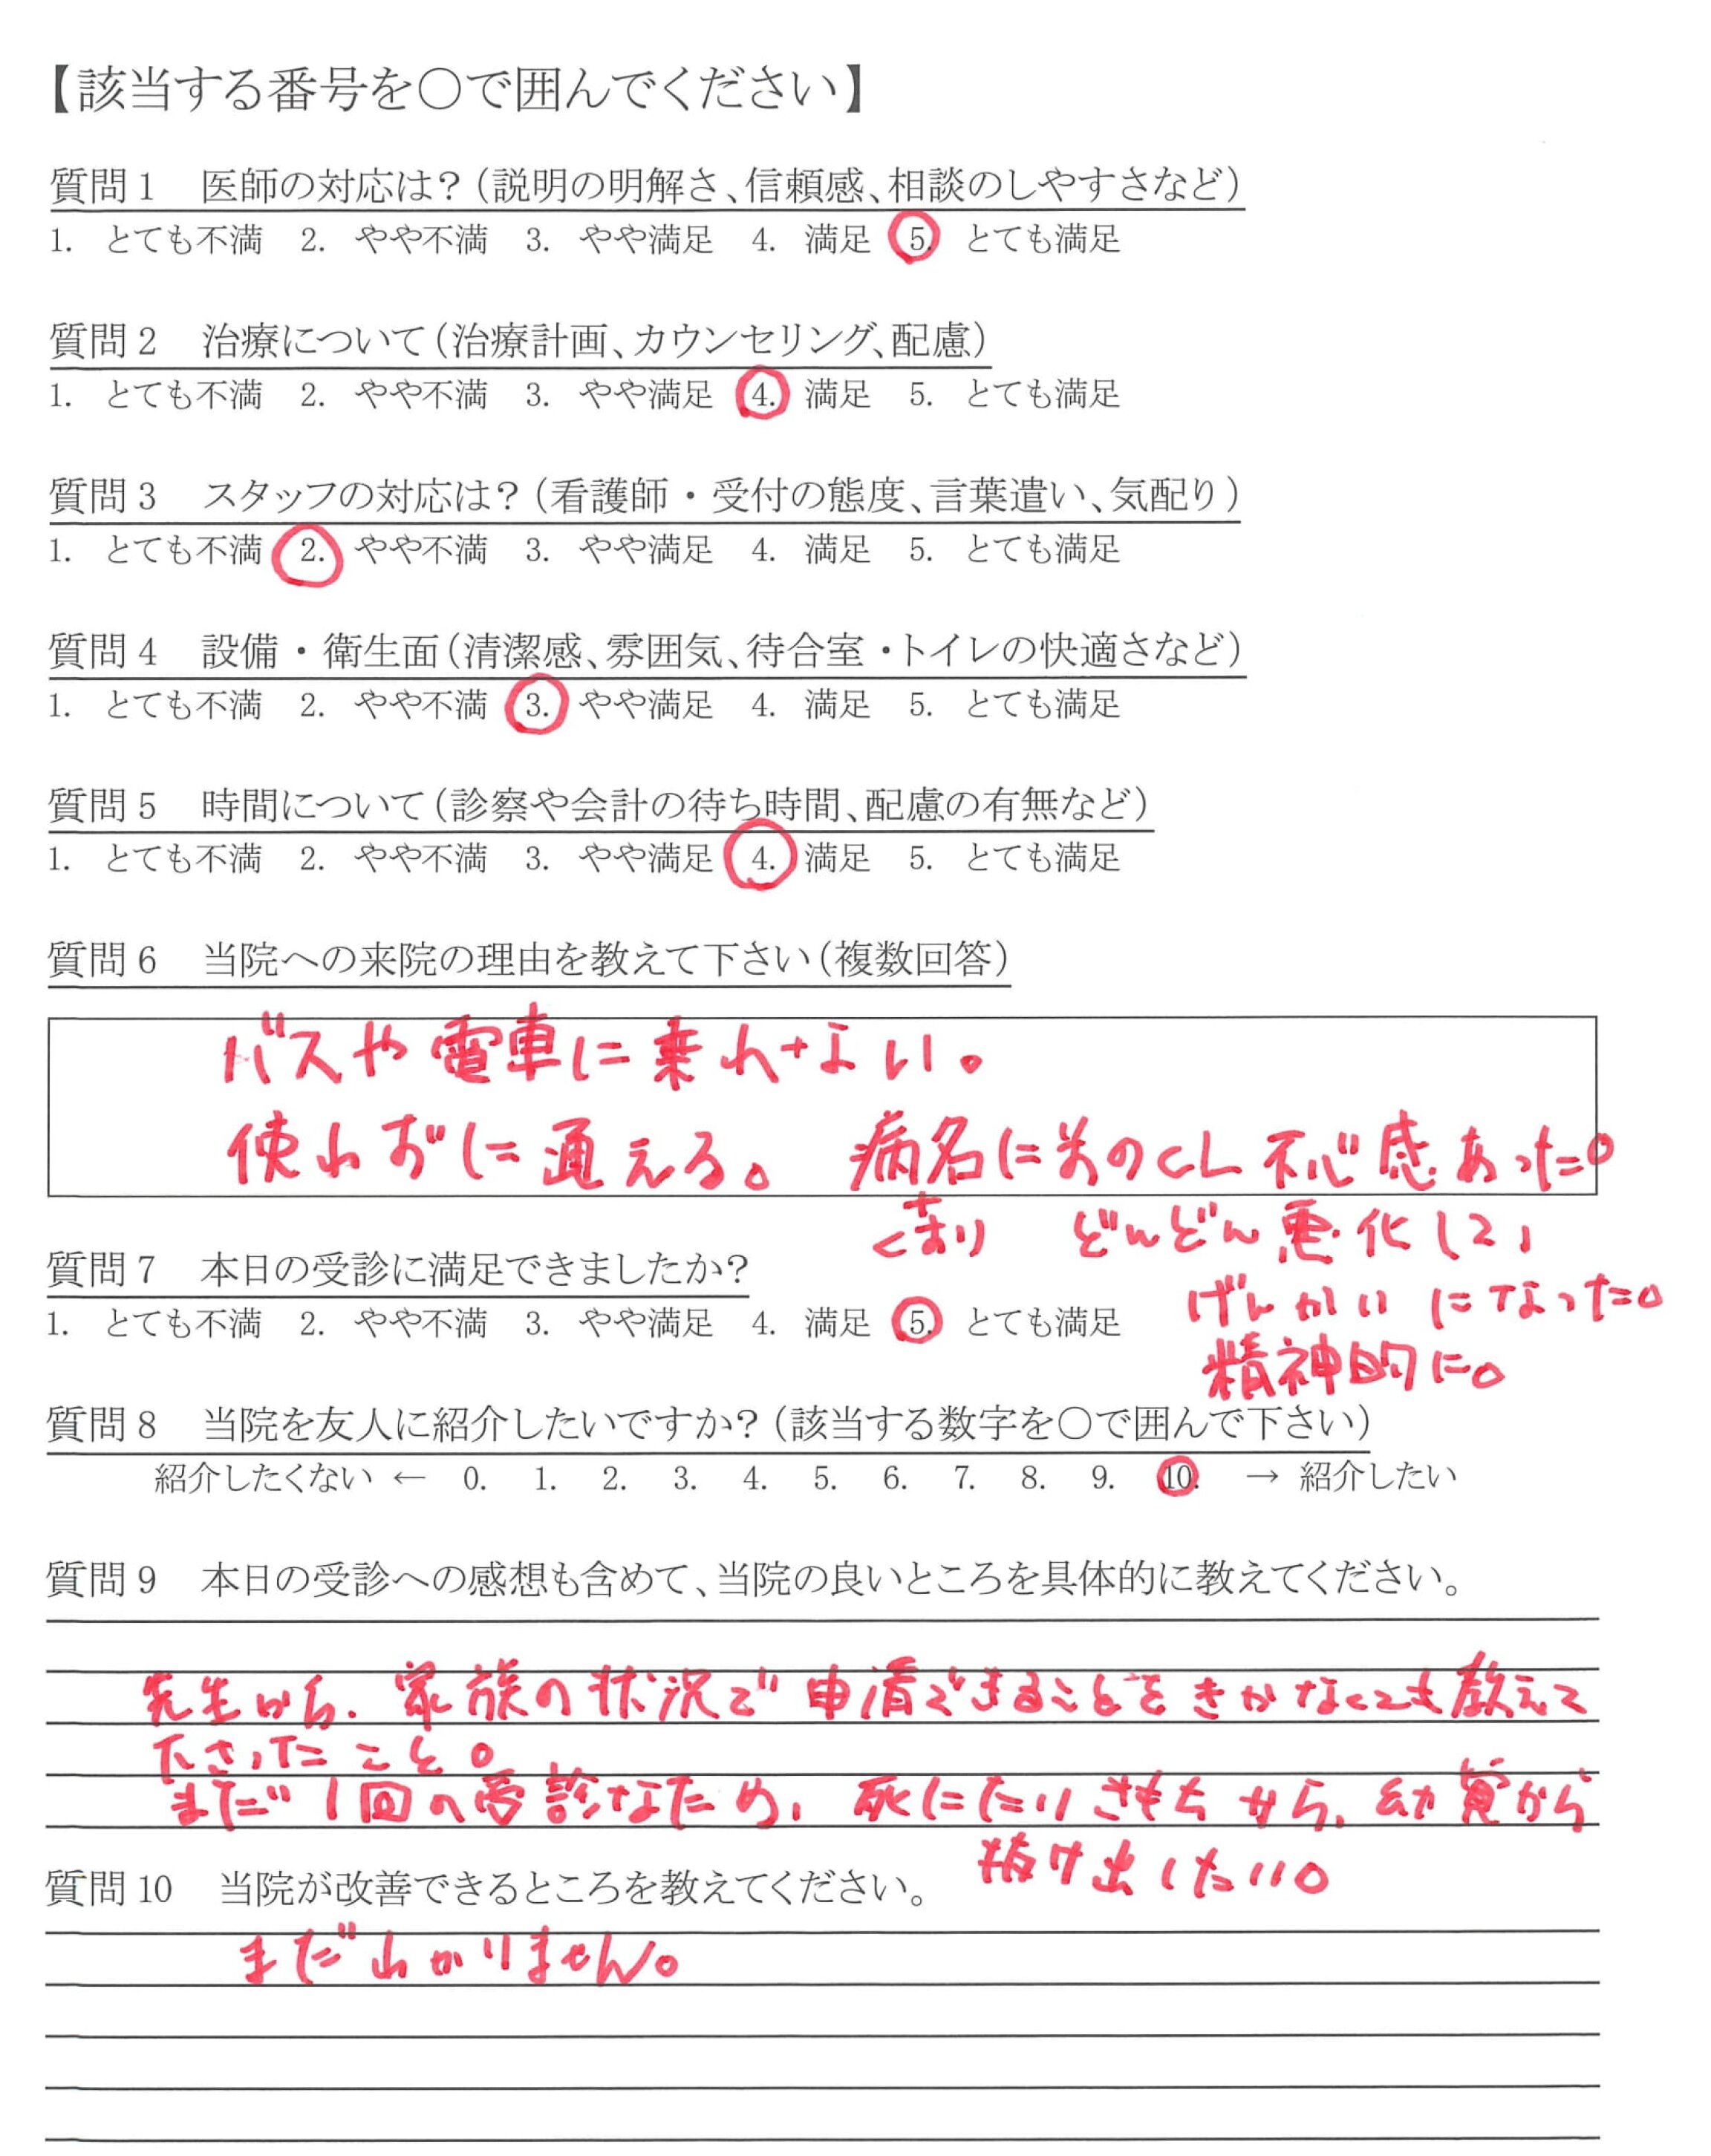 【該当する番号を○で囲んでください】
質問1 医師の対応は?(説明の明解さ、信頼感、相談のしやすさなど)
1. とても不満 2. やや不満 3. やや満足 4. 満足 5. とても満足
質問2 治療について(治療計画、カウンセリング、配慮)
1. とても不満 2. やや不満 3. やや満足 4. 満足 5. とても満足
質問3 スタッフの対応は?(看護師・受付の態度、言葉遣い、気配り)
1. とても不満 2. やや不満 3. やや満足 4. 満足 5. とても満足
質問4 設備・衛生面(清潔感、雰囲気、待合室・トイレの快適さなど)
1. とても不満 2. やや不満 3. やや満足 4. 満足 5. とても満足
質問5 時間について(診察や会計の待ち時間、配慮の有無など)
1. とても不満 2. やや不満 3. やや満足 4. 満足 5. とても満足
質問6 当院への来院の理由を教えて下さい(複数回答)
バスや電車に乗れない。
使わずに通える。 病名に 感あった。
どんどん悪化して、
質問7 本日の受診に満足できましたか?
げんかいになった。
1. とても不満 2. やや不満 3. やや満足 4. 満足 5. とても満足
精神的に。
質問8 当院を友人に紹介したいですか?(該当する数字を○で囲んで下さい)
紹介したくない ← 0. 1. 2. 3. 4. 5. 6. 7. 8. 9. 10. → 紹介したい
質問9 本日の受診への感想も含めて、当院の良いところを具体的に教えてください。
先生から、家族の状況で申請できることをきかなくても教えて
下さったこと。
まだ1回の受診なため、死にたいきもちから、幻覚から
抜け出したい。
質問10 当院が改善できるところを教えてください。
まだわかりません。